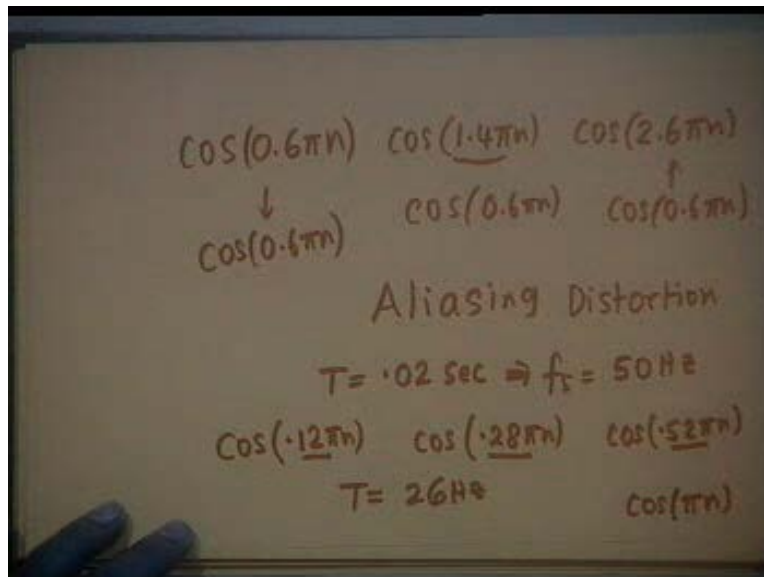 cos(0.6πn) cos(1.4πn) cos(2.6πn)
↓ ↑
cos(0.6πn) cos(0.6πn) cos(0.6πn)
Aliasing Distortion
T= .02 sec ⇒ fs = 50Hz
cos(.12πn) cos(.28πn) cos(.52πn)
T= 26Hz cos(πn)